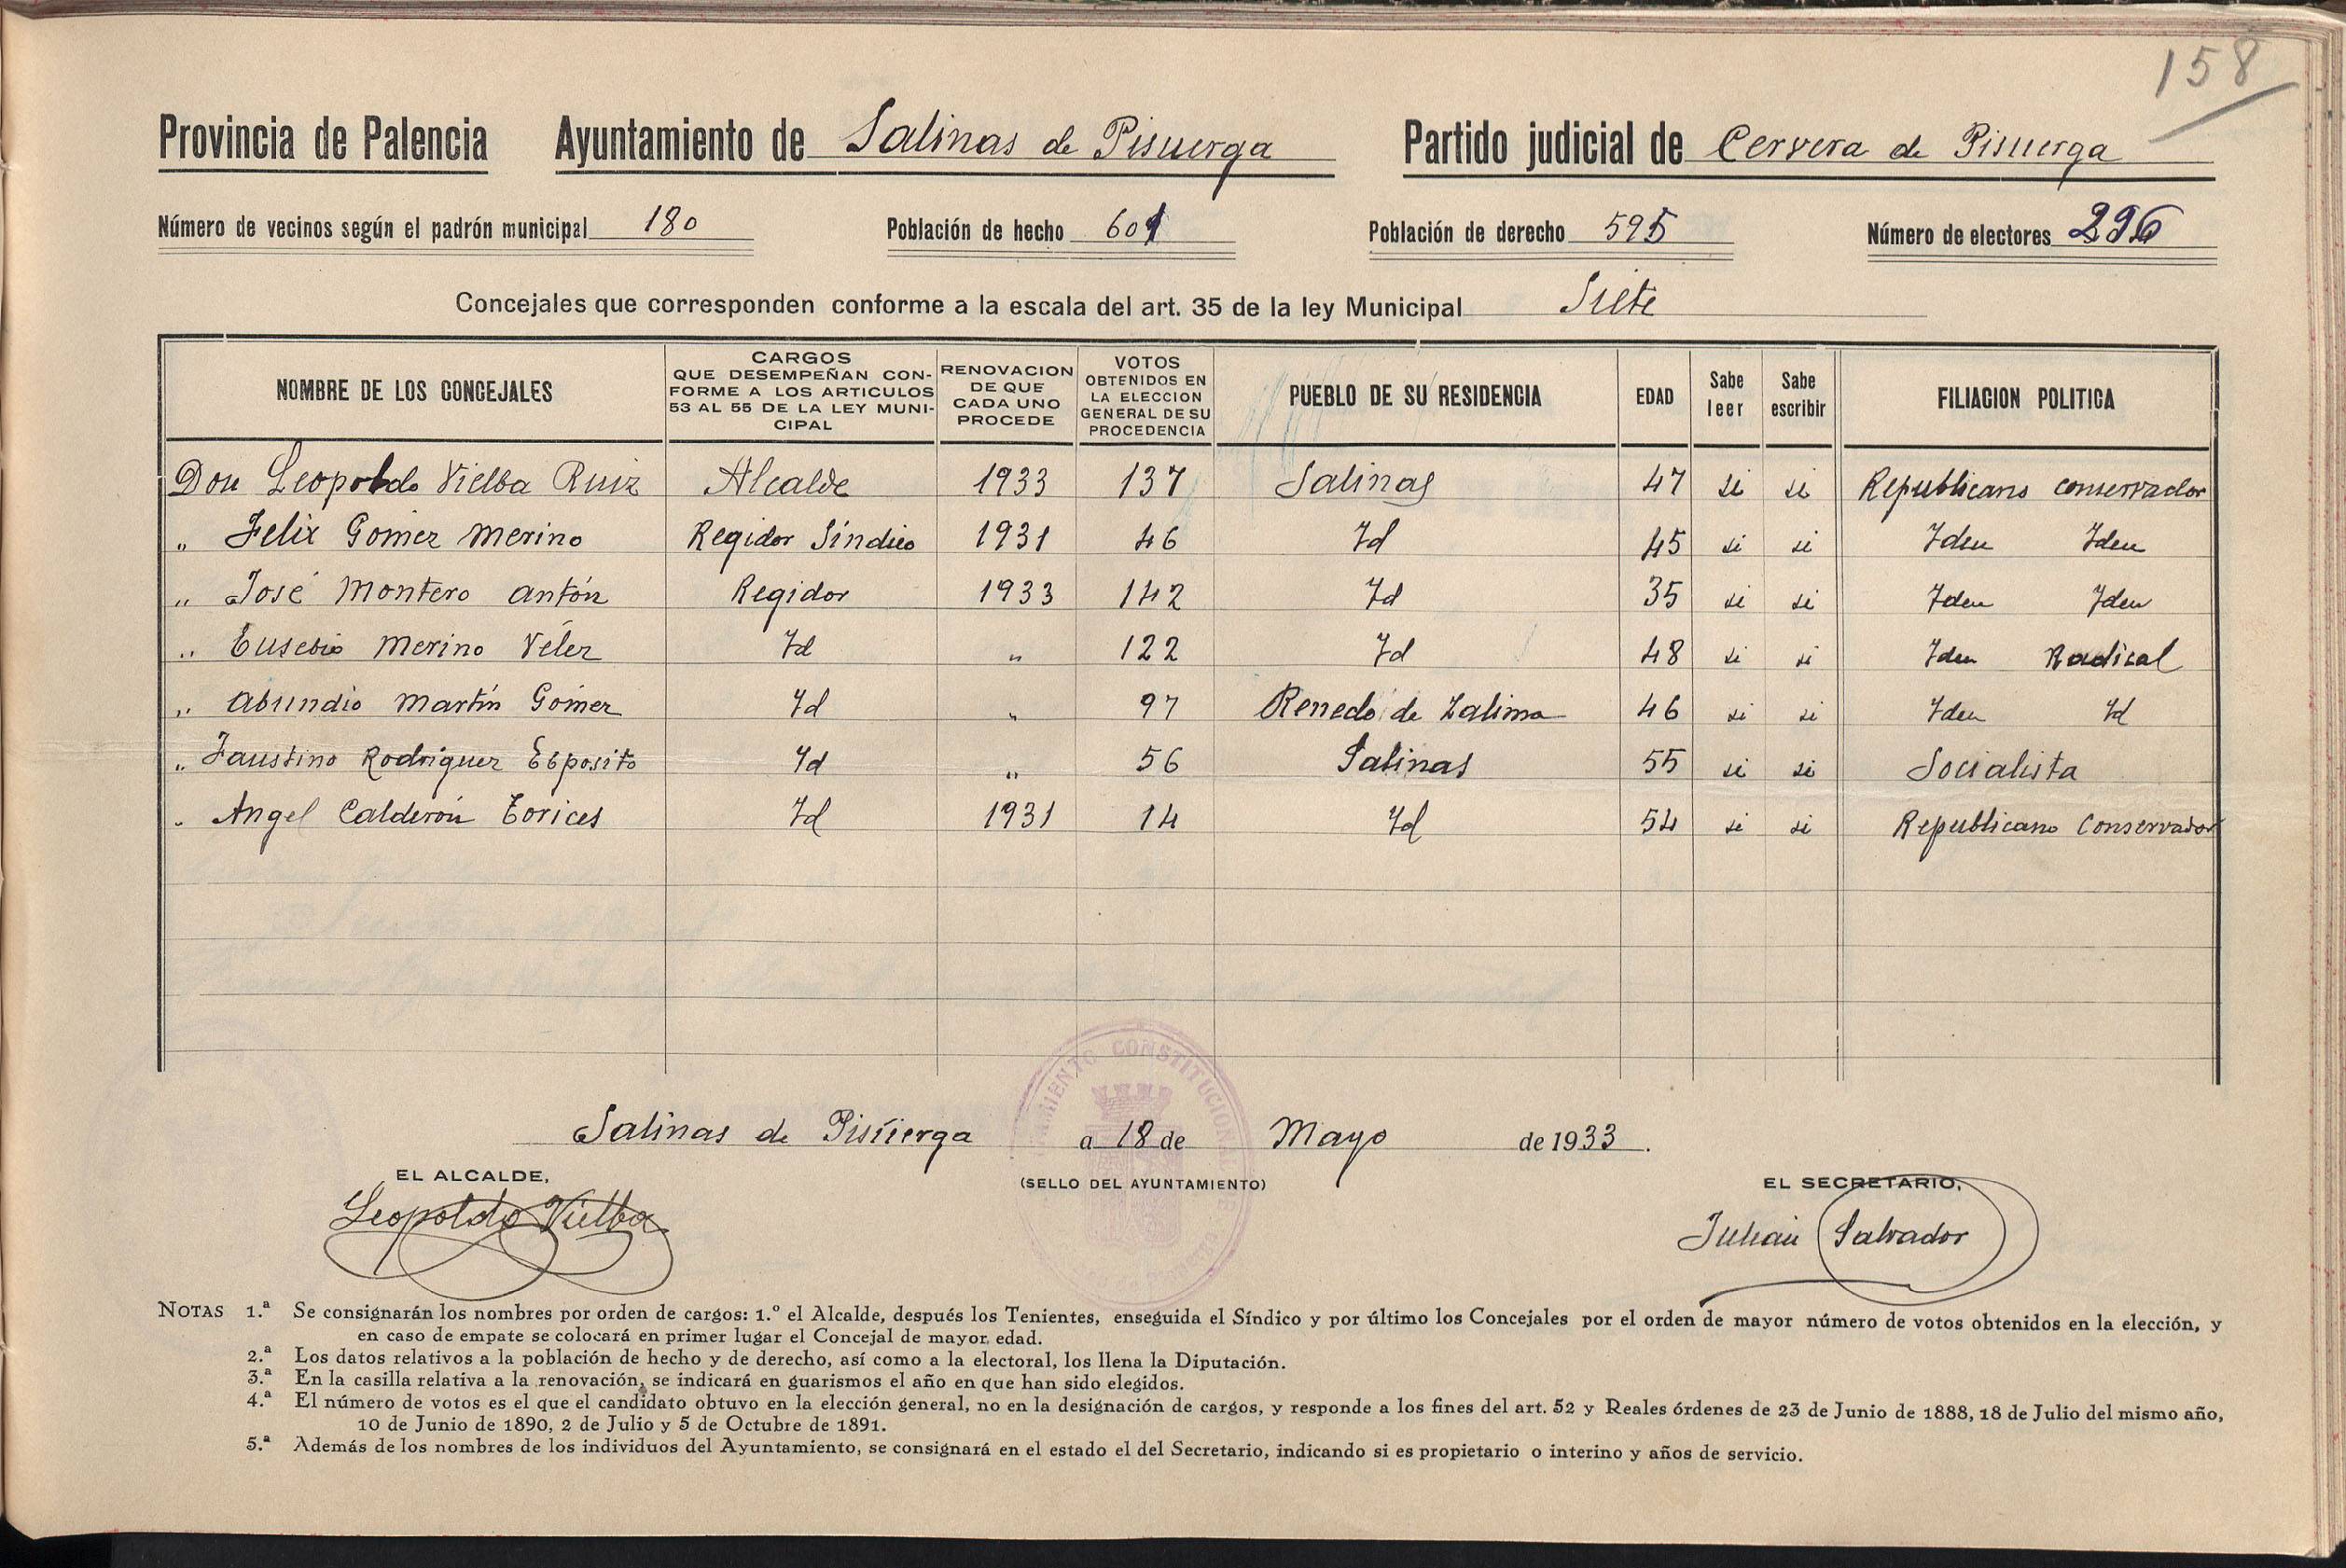 158
Provincia de Palencia Ayuntamiento de Salinas de Pisuerga Partido judicial de Cervera de Pisuerga
Número de vecinos según el padrón municipal 180 Población de hecho 601 Población de derecho 595 Número de electores 296
Concejales que corresponden conforme a la escala del art. 35 de la ley Municipal Siete
NOMBRE DE LOS CONCEJALES CARGOS QUE DESEMPEÑAN CON-FORME A LOS ARTICULOS 53 AL 55 DE LA LEY MUNI-CIPAL RENOVACION DE QUE CADA UNO PROCEDE VOTOS OBTENIDOS EN LA ELECCION GENERAL DE SU PROCEDENCIA PUEBLO DE SU RESIDENCIA EDAD Sabe leer Sabe escribir FILIACION POLITICA
Don Leopoldo Vielba Ruiz Alcalde 1933 137 Salinas 47 si si Republicano conservador
„ Felix Gómez Merino Regidor Síndico 1931 46 Id 45 si si Iden Iden
„ José Montero Antón Regidor 1933 142 Id 35 si si Iden Iden
„ Eusebio Merino Vélez Id „ 122 Id 48 si si Iden Radical
„ Abundio Martín Gómez Id „ 97 Renedo de Zalima 46 si si Iden Id
„ Faustino Rodríguez Esposito Id „ 56 Salinas 55 si si Socialista
„ Angel Calderón Torices Id 1931 14 Id 54 si si Republicano Conservador
Salinas de Pisuerga a 18 de Mayo de 1933.
EL ALCALDE, (SELLO DEL AYUNTAMIENTO) EL SECRETARIO,
Leopoldo Vielba Julián Salvador
NOTAS 1.ª Se consignarán los nombres por orden de cargos: 1.º el Alcalde, después los Tenientes, enseguida el Síndico y por último los Concejales por el orden de mayor número de votos obtenidos en la elección, y
en caso de empate se colocará en primer lugar el Concejal de mayor edad.
2.ª Los datos relativos a la población de hecho y de derecho, así como a la electoral, los llena la Diputación.
3.ª En la casilla relativa a la renovación, se indicará en guarismos el año en que han sido elegidos.
4.ª El número de votos es el que el candidato obtuvo en la elección general, no en la designación de cargos, y responde a los fines del art. 52 y Reales órdenes de 23 de Junio de 1888, 18 de Julio del mismo año,
10 de Junio de 1890, 2 de Julio y 5 de Octubre de 1891.
5.ª Además de los nombres de los individuos del Ayuntamiento, se consignará en el estado el del Secretario, indicando si es propietario o interino y años de servicio.